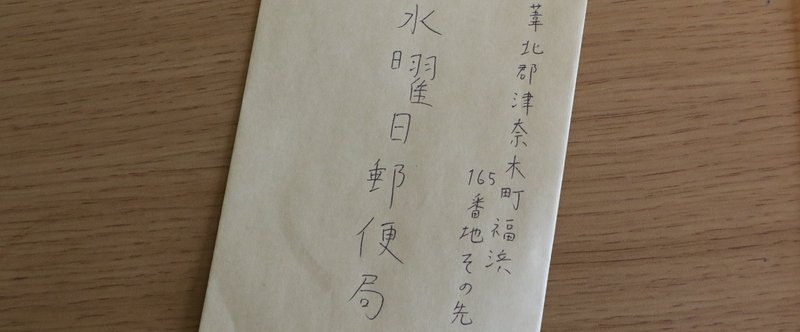 葦北郡津奈木町福浜
165番地その先
水曜日郵便局